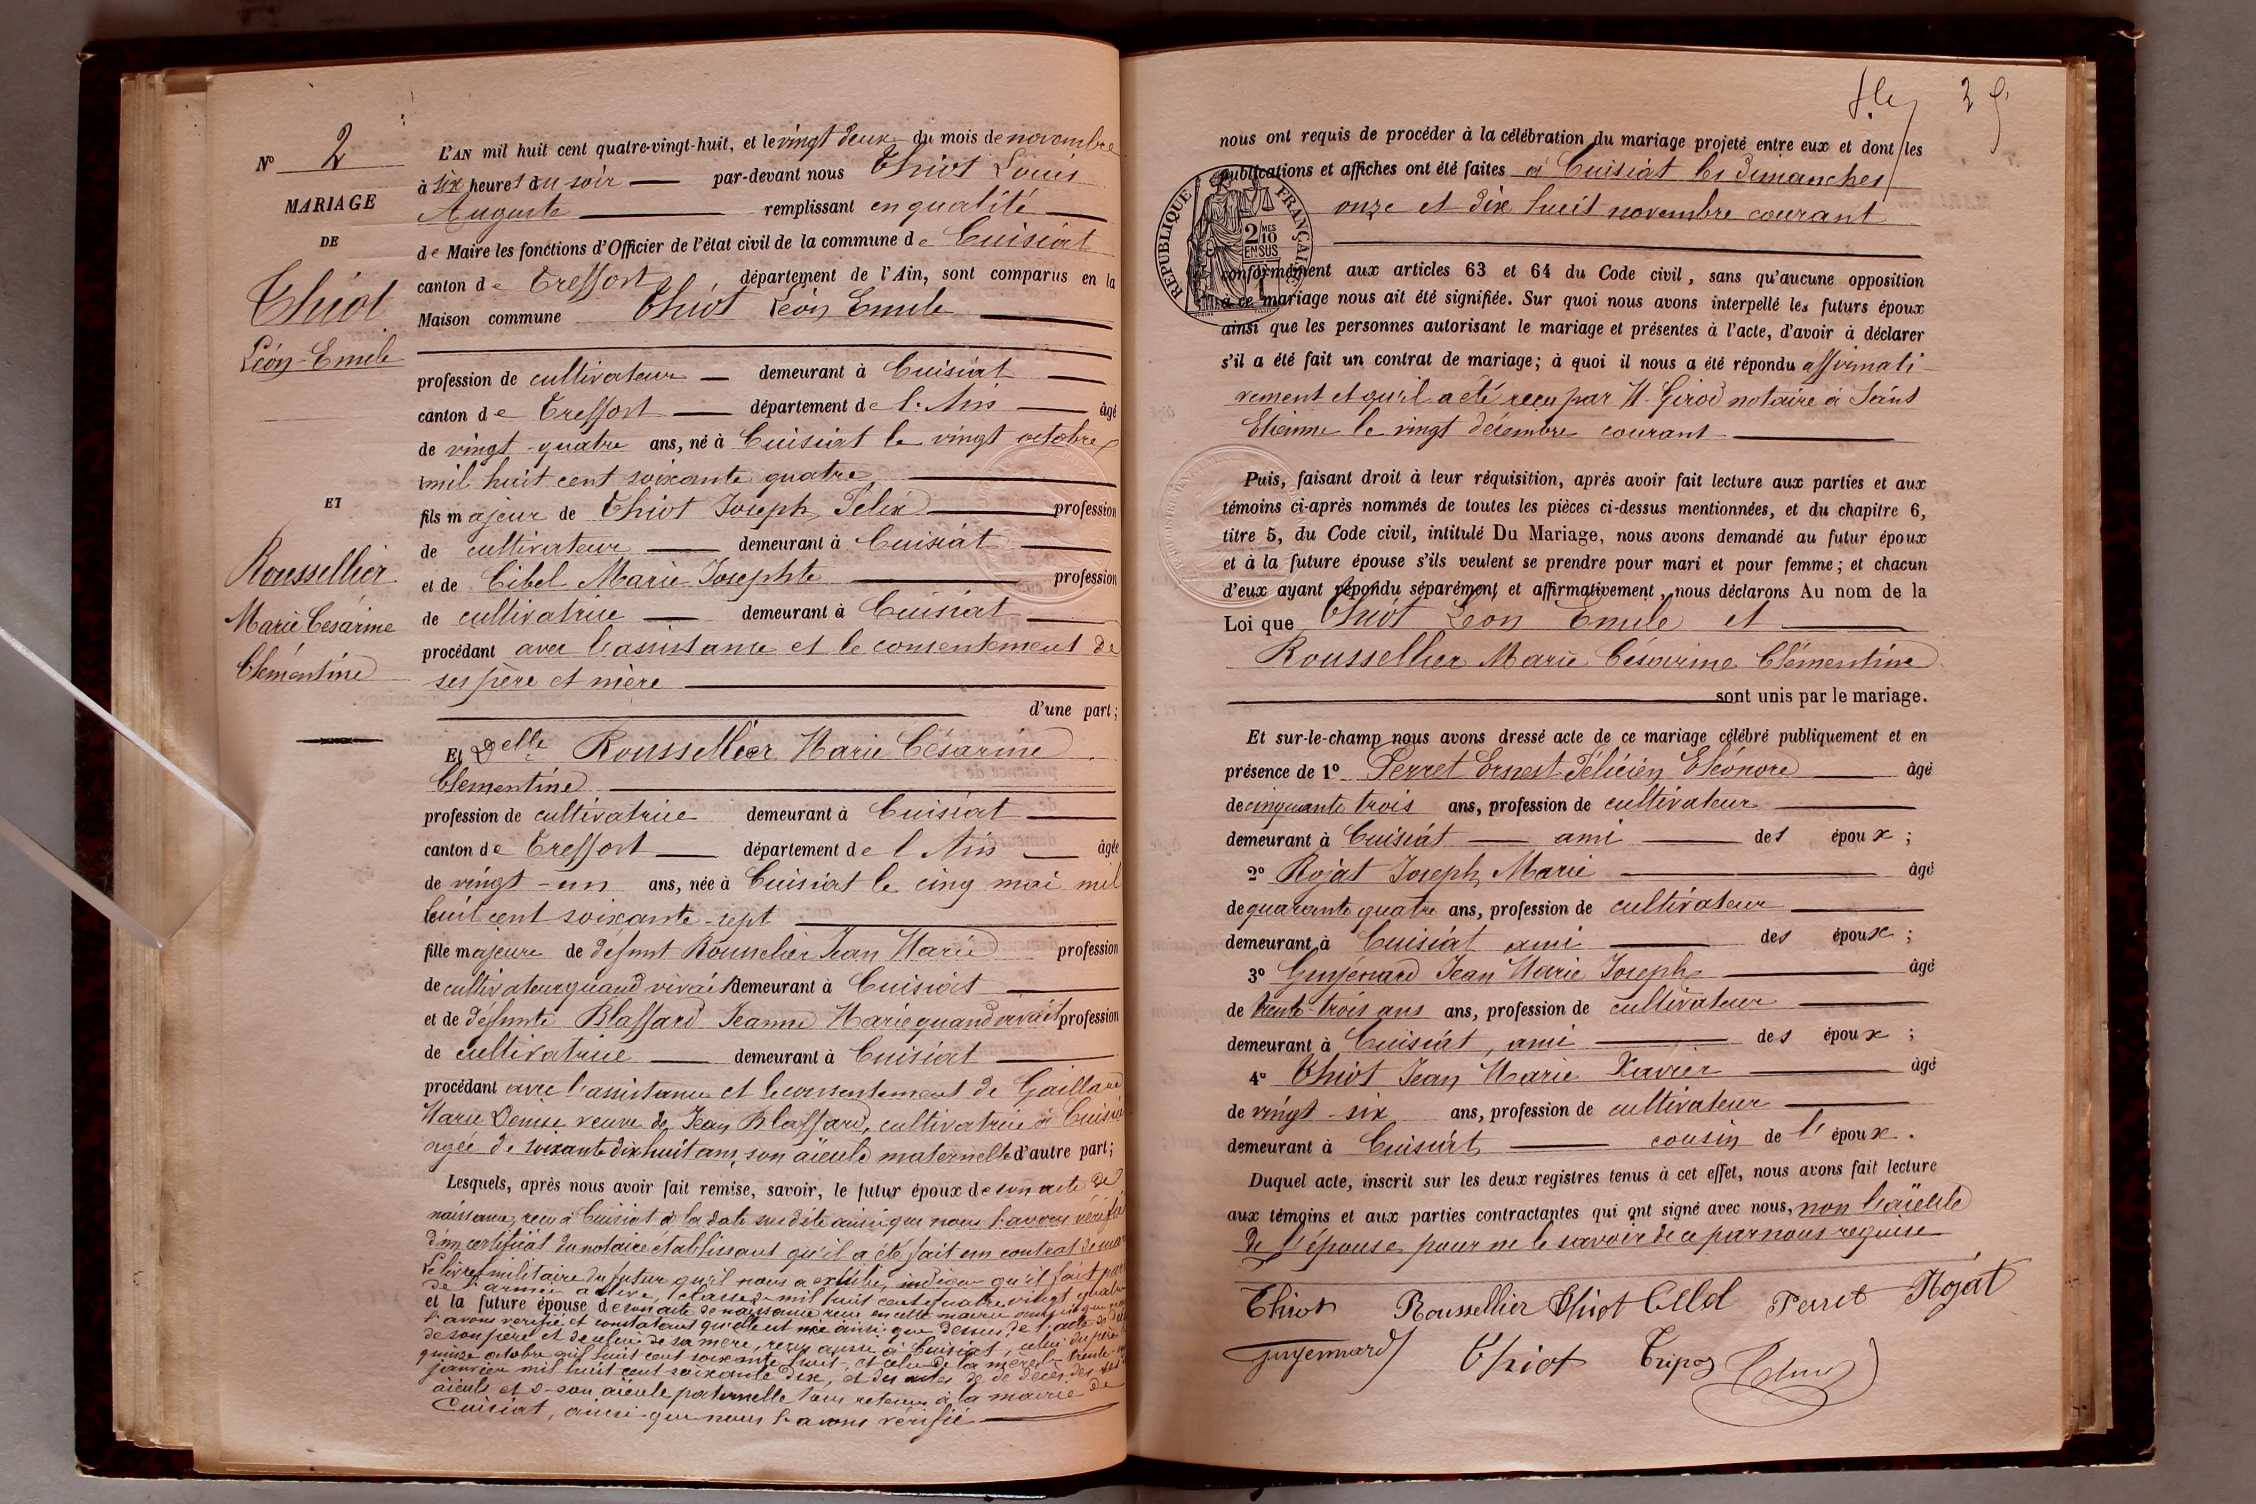 N° 2
MARIAGE
DE
Thiot
Léon-Emile
ET
Roussellier
Marie Césarine
Clémentine
L'AN mil huit cent quatre-vingt-huit, et le vingt deux du mois de novembre
à six heures du soir par-devant nous Thiot Louis
Auguste remplissant en qualité
de Maire les fonctions d'Officier de l'état civil de la commune de Cuisiat
canton de Treffort, département de l'Ain, sont comparus en la
Maison commune Thiot Léon Emile
profession de cultivateur demeurant à Cuisiat
canton de Treffort département de l'Ain âgé
de vingt-quatre ans, né à Cuisiat le vingt octobre
mil huit cent soixante quatre
fils majeur de Thiot Joseph Félix profession
de cultivateur demeurant à Cuisiat
et de Cibel Marie Josephte profession
de cultivatrice demeurant à Cuisiat
procédant avec l'assistance et le consentement de
ses père et mère
d'une part;
Et Delle Roussellier Marie Césarine
Clémentine
profession de cultivatrice demeurant à Cuisiat
canton de Treffort département de l'Ain âgée
de vingt-un ans, née à Cuisiat le cinq mai mil
huit cent soixante-sept
fille majeure de défunt Rousselier Jean Marie profession
de cultivateur quand vivait demeurant à Cuisiat
et de défunte Blaffard Jeanne Marie quand vivait profession
de cultivatrice demeurant à Cuisiat
procédant avec l'assistance et le consentement de Gaillard
Marie Denise veuve de Jean Blaffard, cultivatrice à Cuisiat
agée de soixante dix huit ans, son aïeule maternelle d'autre part;
Lesquels, après nous avoir fait remise, savoir, le futur époux de son acte de
naissance, reçu à Cuisiat à la date susdite ainsi que nous l'avons vérifié
d'un certificat du notaire établissant qu'il a été fait un contrat de
Le livret militaire du futur qu'il nous a exhibé, indique qu'il fait
de l'armée active, classe de mil huit cent quatre vingt quatre
et la future épouse de son acte de naissance reçu en cette mairie ainsi que
l'avons vérifié et constatant qu'elle est née ainsi que dessus, de l'acte de
de son père et de celui de sa mère, reçus aussi à Cuisiat, celui du père
quinze octobre mil huit cent soixante huit, et celui de la mère
janvier mil huit cent soixante dix, et des actes de décès de ses
aïeuls et de son aïeule paternelle tous retenus à la mairie de
Cuisiat, ainsi que nous l'avons vérifié
nous ont requis de procéder à la célébration du mariage projeté entre eux et dont les
publications et affiches ont été faites à Cuisiat les dimanches
onze et dix huit novembre courant
RÉPUBLIQUE FRANÇAISE
2/10 MES EN SUS
conformément aux articles 63 et 64 du Code civil, sans qu'aucune opposition
à ce mariage nous ait été signifiée. Sur quoi nous avons interpellé les futurs époux
ainsi que les personnes autorisant le mariage et présentes à l'acte, d'avoir à déclarer
s'il a été fait un contrat de mariage; à quoi il nous a été répondu affirmati
vement et qu'il a été reçu par M. Girod notaire à Saint
Etienne le vingt décembre courant
Puis, faisant droit à leur réquisition, après avoir fait lecture aux parties et aux
témoins ci-après nommés de toutes les pièces ci-dessus mentionnées, et du chapitre 6,
titre 5, du Code civil, intitulé Du Mariage, nous avons demandé au futur époux
et à la future épouse s'ils veulent se prendre pour mari et pour femme; et chacun
d'eux ayant répondu séparément et affirmativement, nous déclarons Au nom de la
Loi que Thiot Léon Emile et
Roussellier Marie Césarine Clémentine
sont unis par le mariage.
Et sur-le-champ nous avons dressé acte de ce mariage célébré publiquement et en
présence de 1° Perret Ernest Félicien Eléonore âgé
de cinquante trois ans, profession de cultivateur
demeurant à Cuisiat ami des époux;
2° Rojat Joseph Marie âgé
de quarante quatre ans, profession de cultivateur
demeurant à Cuisiat ami des époux;
3° Guyénard Jean Marie Joseph âgé
de trente-trois ans ans, profession de cultivateur
demeurant à Cuisiat, ami des époux;
4° Thiot Jean Marie Xavier âgé
de vingt-six ans, profession de cultivateur
demeurant à Cuisiat cousin de l'époux.
Duquel acte, inscrit sur les deux registres tenus à cet effet, nous avons fait lecture
aux témoins et aux parties contractantes qui ont signé avec nous, non l'aïeule
de l'épouse pour ne le savoir de ce par nous requise
Thiot Roussellier Thiot Perret Rojat
Guyennard Thiot